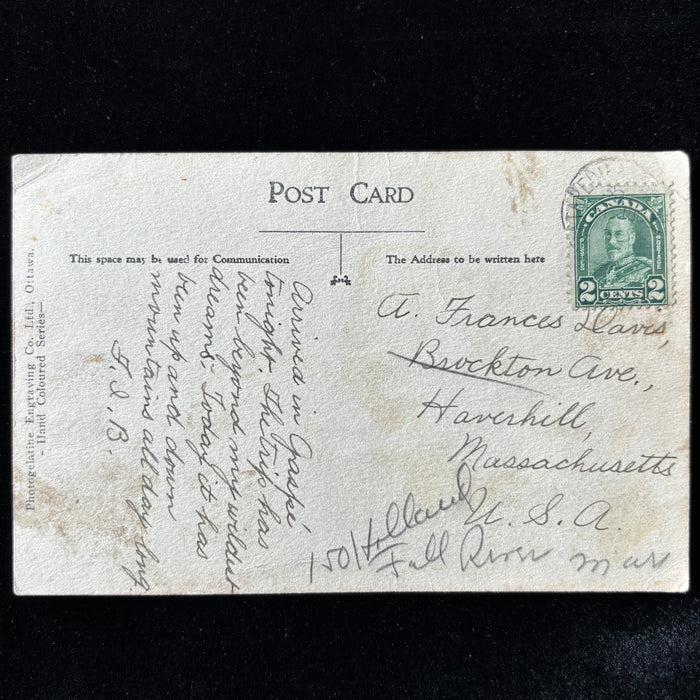 POST CARD
This space may be used for Communication
The Address to be written here
Photogelatine Engraving Co. Ltd., Ottawa.
- Hand Coloured Series-
CANADA
2 CENTS 2
Arrived in Gaspé
tonight. The trip has
been beyond my wildest
dreams. Today it has
been up and down
mountains all day long.
F. I. B.
A. Frances Davis,
Brockton Ave.,
Haverhill,
Massachusetts
U. S. A.
Holland
Fall River Mas